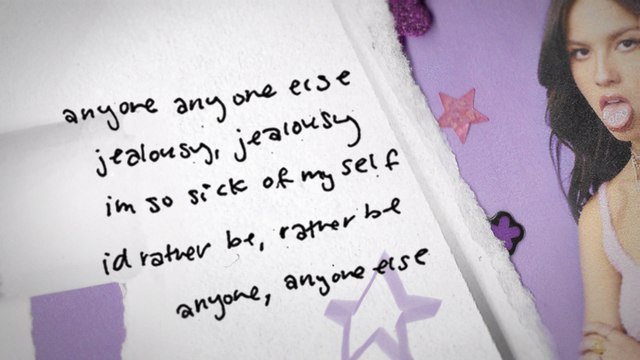 anyone any one else
jealousy, jealousy
im so sick of my self
id rather be, rather be
anyone, anyone else